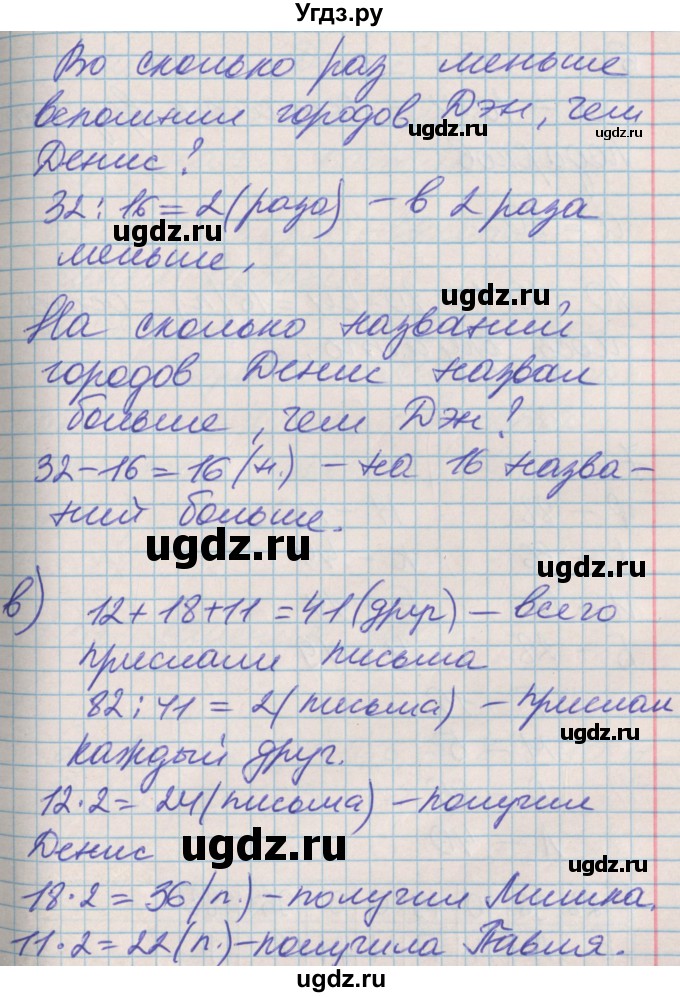 Угдз.ру
Во сколько раз меньше
вспомнил городов Дэн, чем
ugdz.ru
ugdz.ru
Денис?
32 : 16 = 2 (раза) – в 2 раза
ugdz.ru
меньше.
ugdz.ru
На сколько названий
городов Денис назвал
больше, чем Дэн?
ugdz.ru
32 – 16 = 16 (н.) – на 16 назва-
ний больше.
ugdz.ru
ugdz.ru
в) 12 + 18 + 11 = 41 (друг) – всего
прислали письма
ugdz.ru
82 : 41 = 2 (письма) – прислал
ugdz.ru
каждый друг.
12 · 2 = 24 (письма) – получил
Денис
ugdz.ru
ugdz.ru
18 · 2 = 36 (п.) – получил Мишка.
11 · 2 = 22 (п.) – получила
ugdz.ru